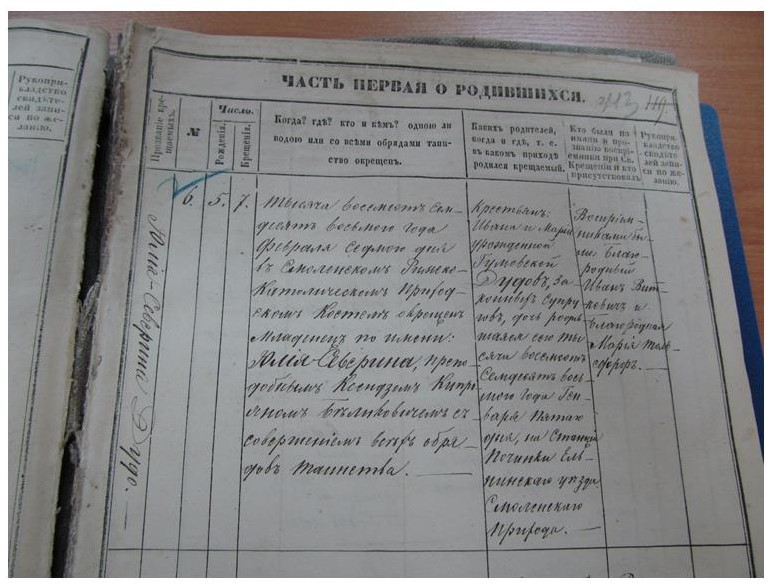 Рукопри-
кладство
свидѣте-
лей запи-
си по же-
ланію.
ЧАСТЬ ПЕРВАЯ О РОДИВШИХСЯ.
Прозваніе кре-
щаемыхъ.
№
Число.
Рожденія.
Крещенія.
Когда? гдѣ? кто и кѣмъ? одною ли
водою или со всѣми обрядами таин-
ство окрещенъ.
Какихъ родителей,
когда и гдѣ, т. е.
въ какомъ приходѣ
родился крещаемый.
Кто были по
имени и про-
званію воспріе-
мники при Св.
Крещеніи и кто
присутствовалъ
Рукопри-
кладство
свидѣте-
лей запи-
си по же-
ланію.
Юлія-Северина Дудо.
6.
5.
7.
Тысяча восемсотъ сем-
десятъ восьмого года
Февраля седмого дня
въ Смоленскомъ Римско-
Католическомъ Приход-
скомъ Костелѣ окрещенъ
младенецъ по имени:
Юлія-Северина, препо-
добнымъ Ксендзомъ Кипрі-
яномъ съ
совершеніемъ всѣхъ обря-
довъ таинства.
Крестьянъ:
Ивана и Маріи
урожденной
Гумовской
Дудовъ, за
конныхъ супру
говъ, дочь роди
вшаяся сего ты
сяча восемсотъ
семдесятъ вось-
мого года Ген-
варя пятаго
дня, на Станціи
Починки Ель-
нинскаго уѣзда
Смоленскаго
Прихода.
Воспріем-
никами бы-
ли: благо-
родный
Иванъ Вит-
кевичъ и
благородная
Марія